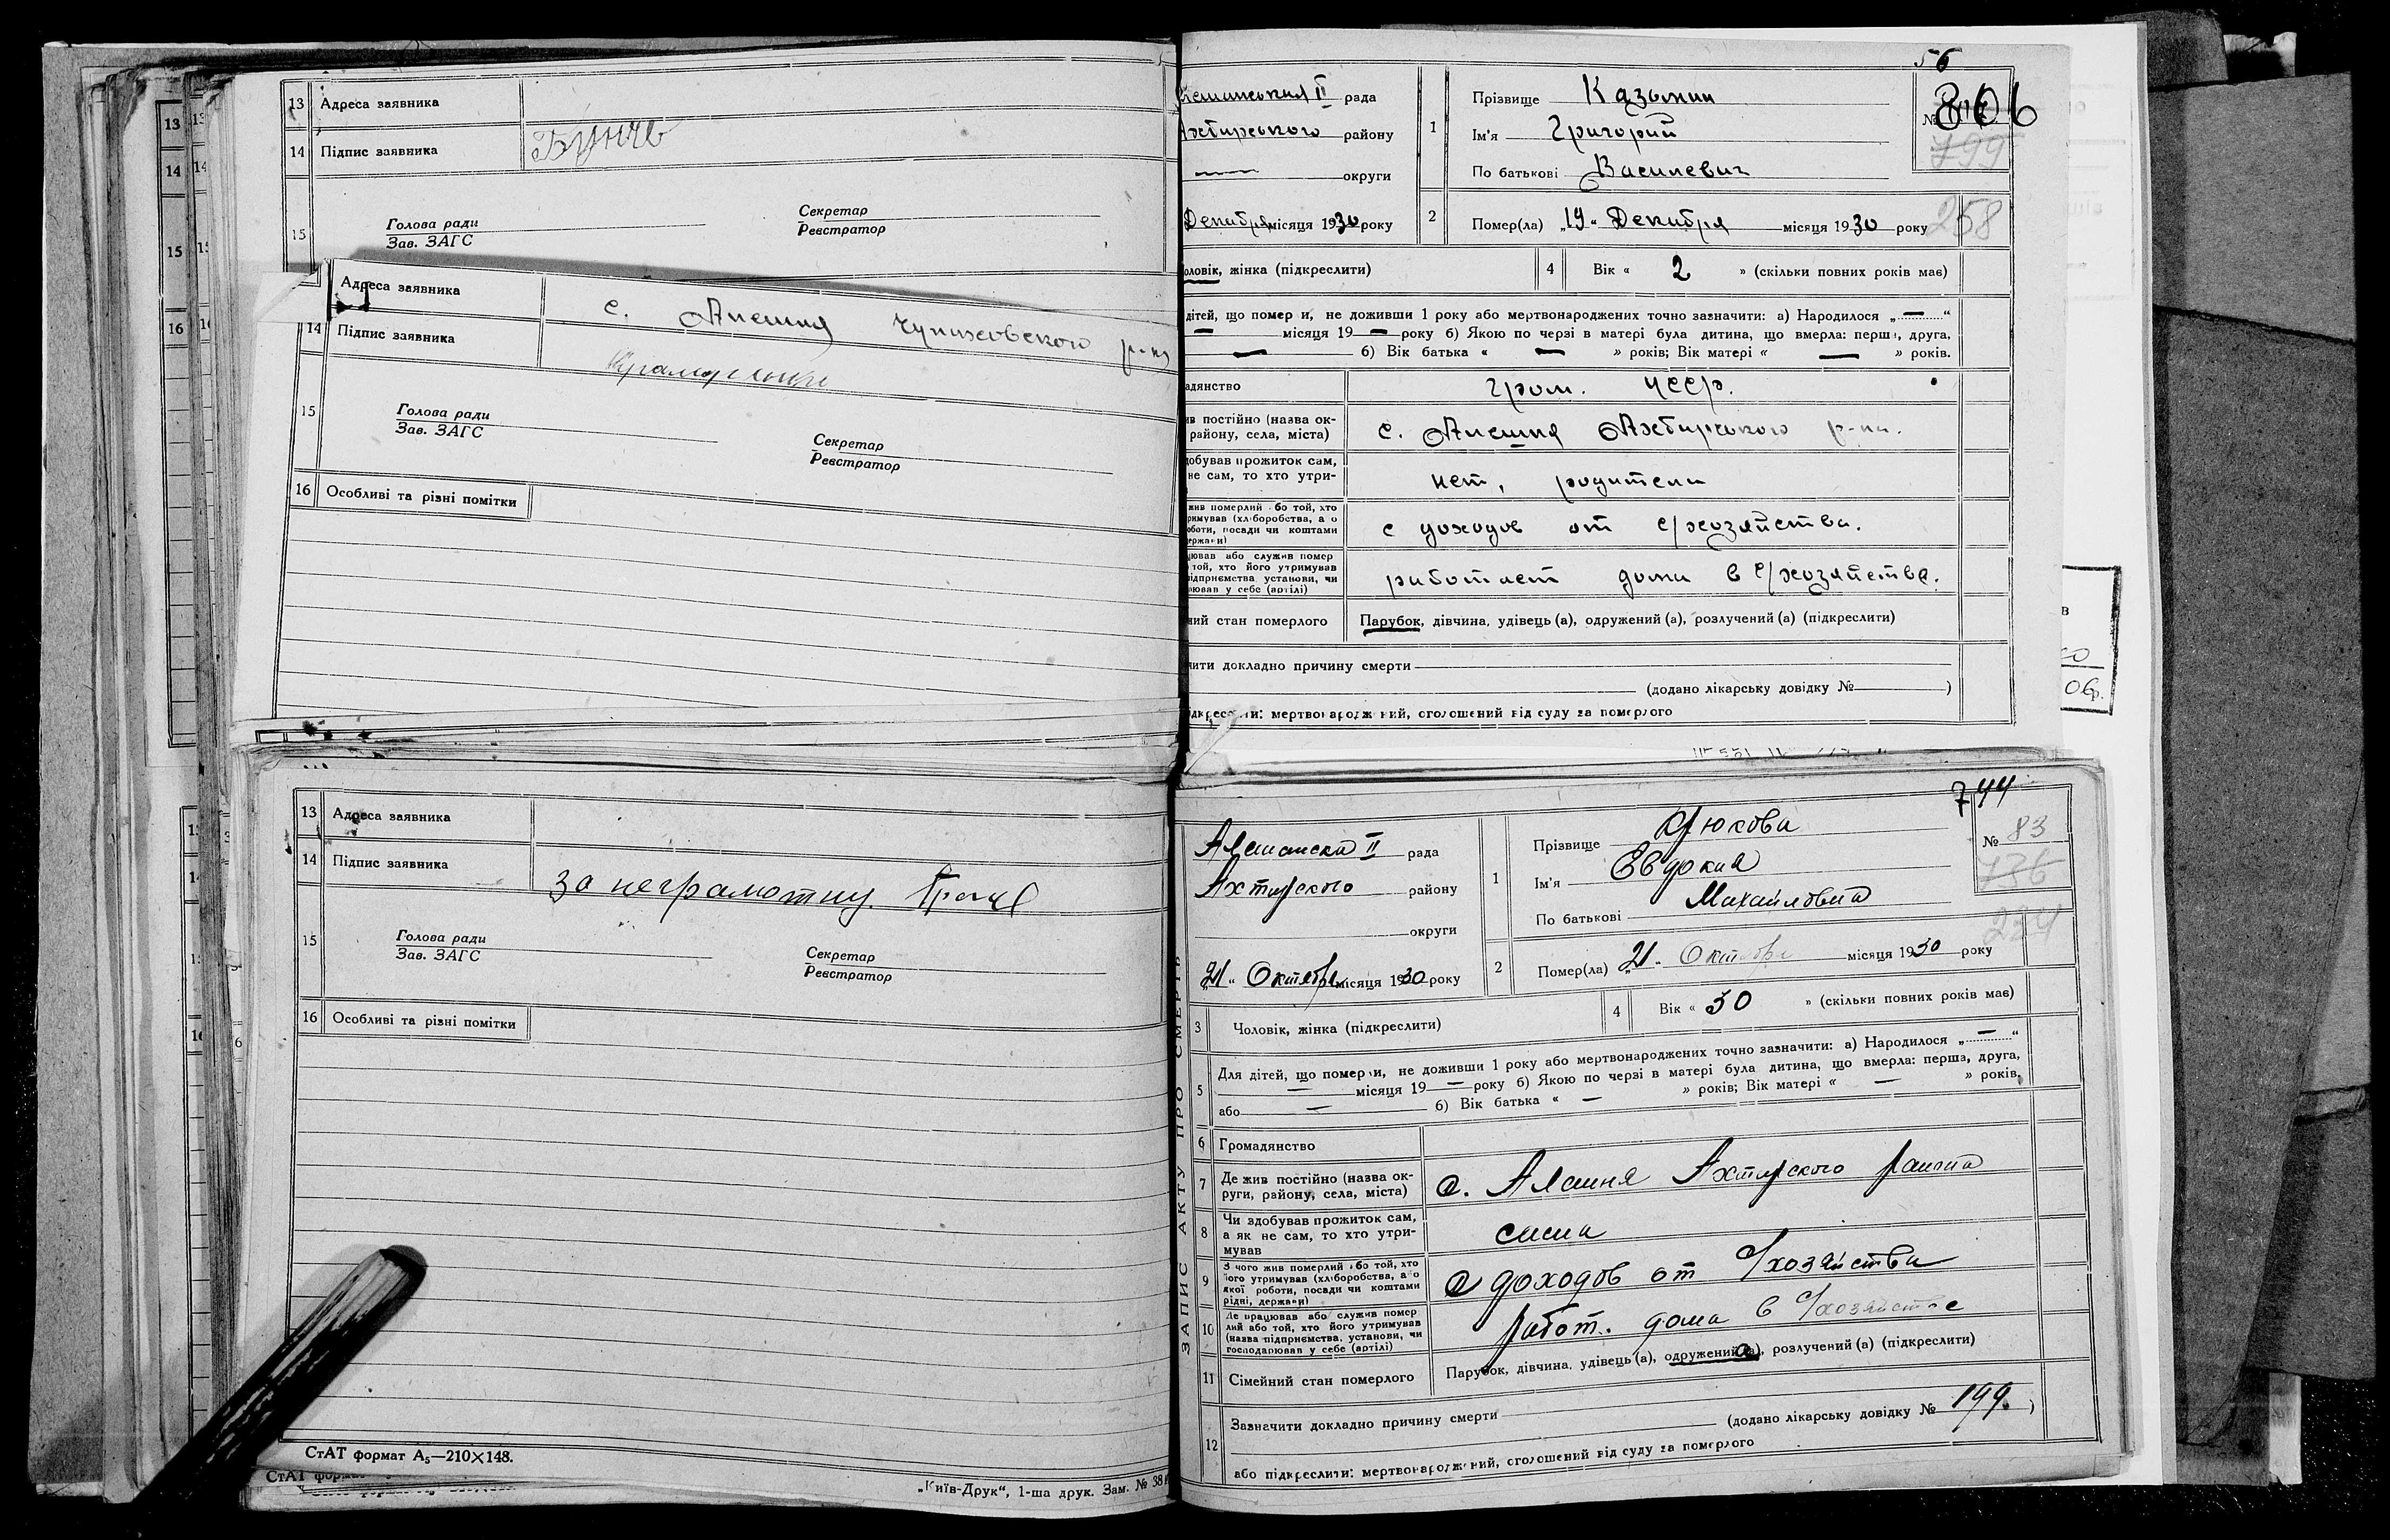 13 Адреса заявника
14 Підпис заявника
15
Голова ради
Зав. ЗАГС
Секретар
Реєстратор
Адреса заявника с. Алешня Чупиховского р-на
14 Підпис заявника
15
Голова ради
Зав. ЗАГС
Секретар
Реєстратор
16 Особливі та різні помітки
13 Адреса заявника
14 Підпис заявника за неграмотну
15
Голова ради
Зав. ЗАГС
Секретар
Реєстратор
16 Особливі та різні помітки
СтАТ формат А₅—210×148.
„Київ-Друк“, 1-ша друк. Зам. № 38
56
II рада
Ахтирського району
округи
Декабря місяця 1930 року
1 Прізвище Казьмин
Ім'я Григорий
По батькові Василевич
806
799
2 Помер(ла) „19“ Декабря місяця 1930 року
258
чоловік, жінка (підкреслити)
4 Вік « 2 » (скільки повних років має)
дітей, що померли, не доживши 1 року або мертвонароджених точно зазначити: а) Народилося „—“
— місяця 19— року б) Якою по черзі в матері була дитина, що вмерла: перша, друга,
— б) Вік батька « — » років; Вік матері « — » років.
адянство гром. УССР.
ив постійно (назва ок-
району, села, міста) с. Алешня Ахтирського р-на.
добував прожиток сам,
не сам, то хто утри- нет, родители
жив померлий або той, хто
римував (хліборобства, а о
оботи, посади чи коштами
держави) с доходов от с/хозяйства.
цював або служив помер
той, хто його утримував
підприємства установи, чи
рював у себе (артілі) работает дома в с/хозяйстве.
ний стан померлого Парубок, дівчина, удівець (а), одружений (а), розлучений (а) (підкреслити)
чити докладно причину смерти
(додано лікарську довідку № )
ідкреслити: мертвонароджений, оголошений від суду за померлого
744
ЗАПИС АКТУ ПРО СМЕРТЬ
Алешанска II рада
Ахтырского району
округи
„21“ Октября місяця 1930 року
1 Прізвище Крюкова
Ім'я Евдокия
По батькові Михайловна
№ 83
736
234
2 Помер(ла) „21“ Октября місяця 1930 року
3 Чоловік, жінка (підкреслити)
4 Вік « 30 » (скільки повних років має)
5 Для дітей, що померли, не доживши 1 року або мертвонароджених точно зазначити: а) Народилося „—“
— місяця 19— року б) Якою по черзі в матері була дитина, що вмерла: перша, друга,
або — б) Вік батька « — » років; Вік матері « — » років.
6 Громадянство
7 Де жив постійно (назва ок-
руги, району, села, міста) с. Алешня Ахтырского района
8 Чи здобував прожиток сам,
а як не сам, то хто утри-
мував сама
9 З чого жив померлий або той, хто
його утримував (хліборобства, а о
якої роботи, посади чи коштами
рідні, держави) с доходов от с/хозяйства
10 Де працював або служив помер
лий або той, хто його утримував
(назва підприємства, установи, чи
господарював у себе (артілі) работ. дома в с/хозяйстве
11 Сімейний стан померлого Парубок, дівчина, удівець (а), одружений (а), розлучений (а) (підкреслити)
12 Зазначити докладно причину смерти
(додано лікарську довідку № 199.)
або підкреслити: мертвонароджений, оголошений від суду за померлого